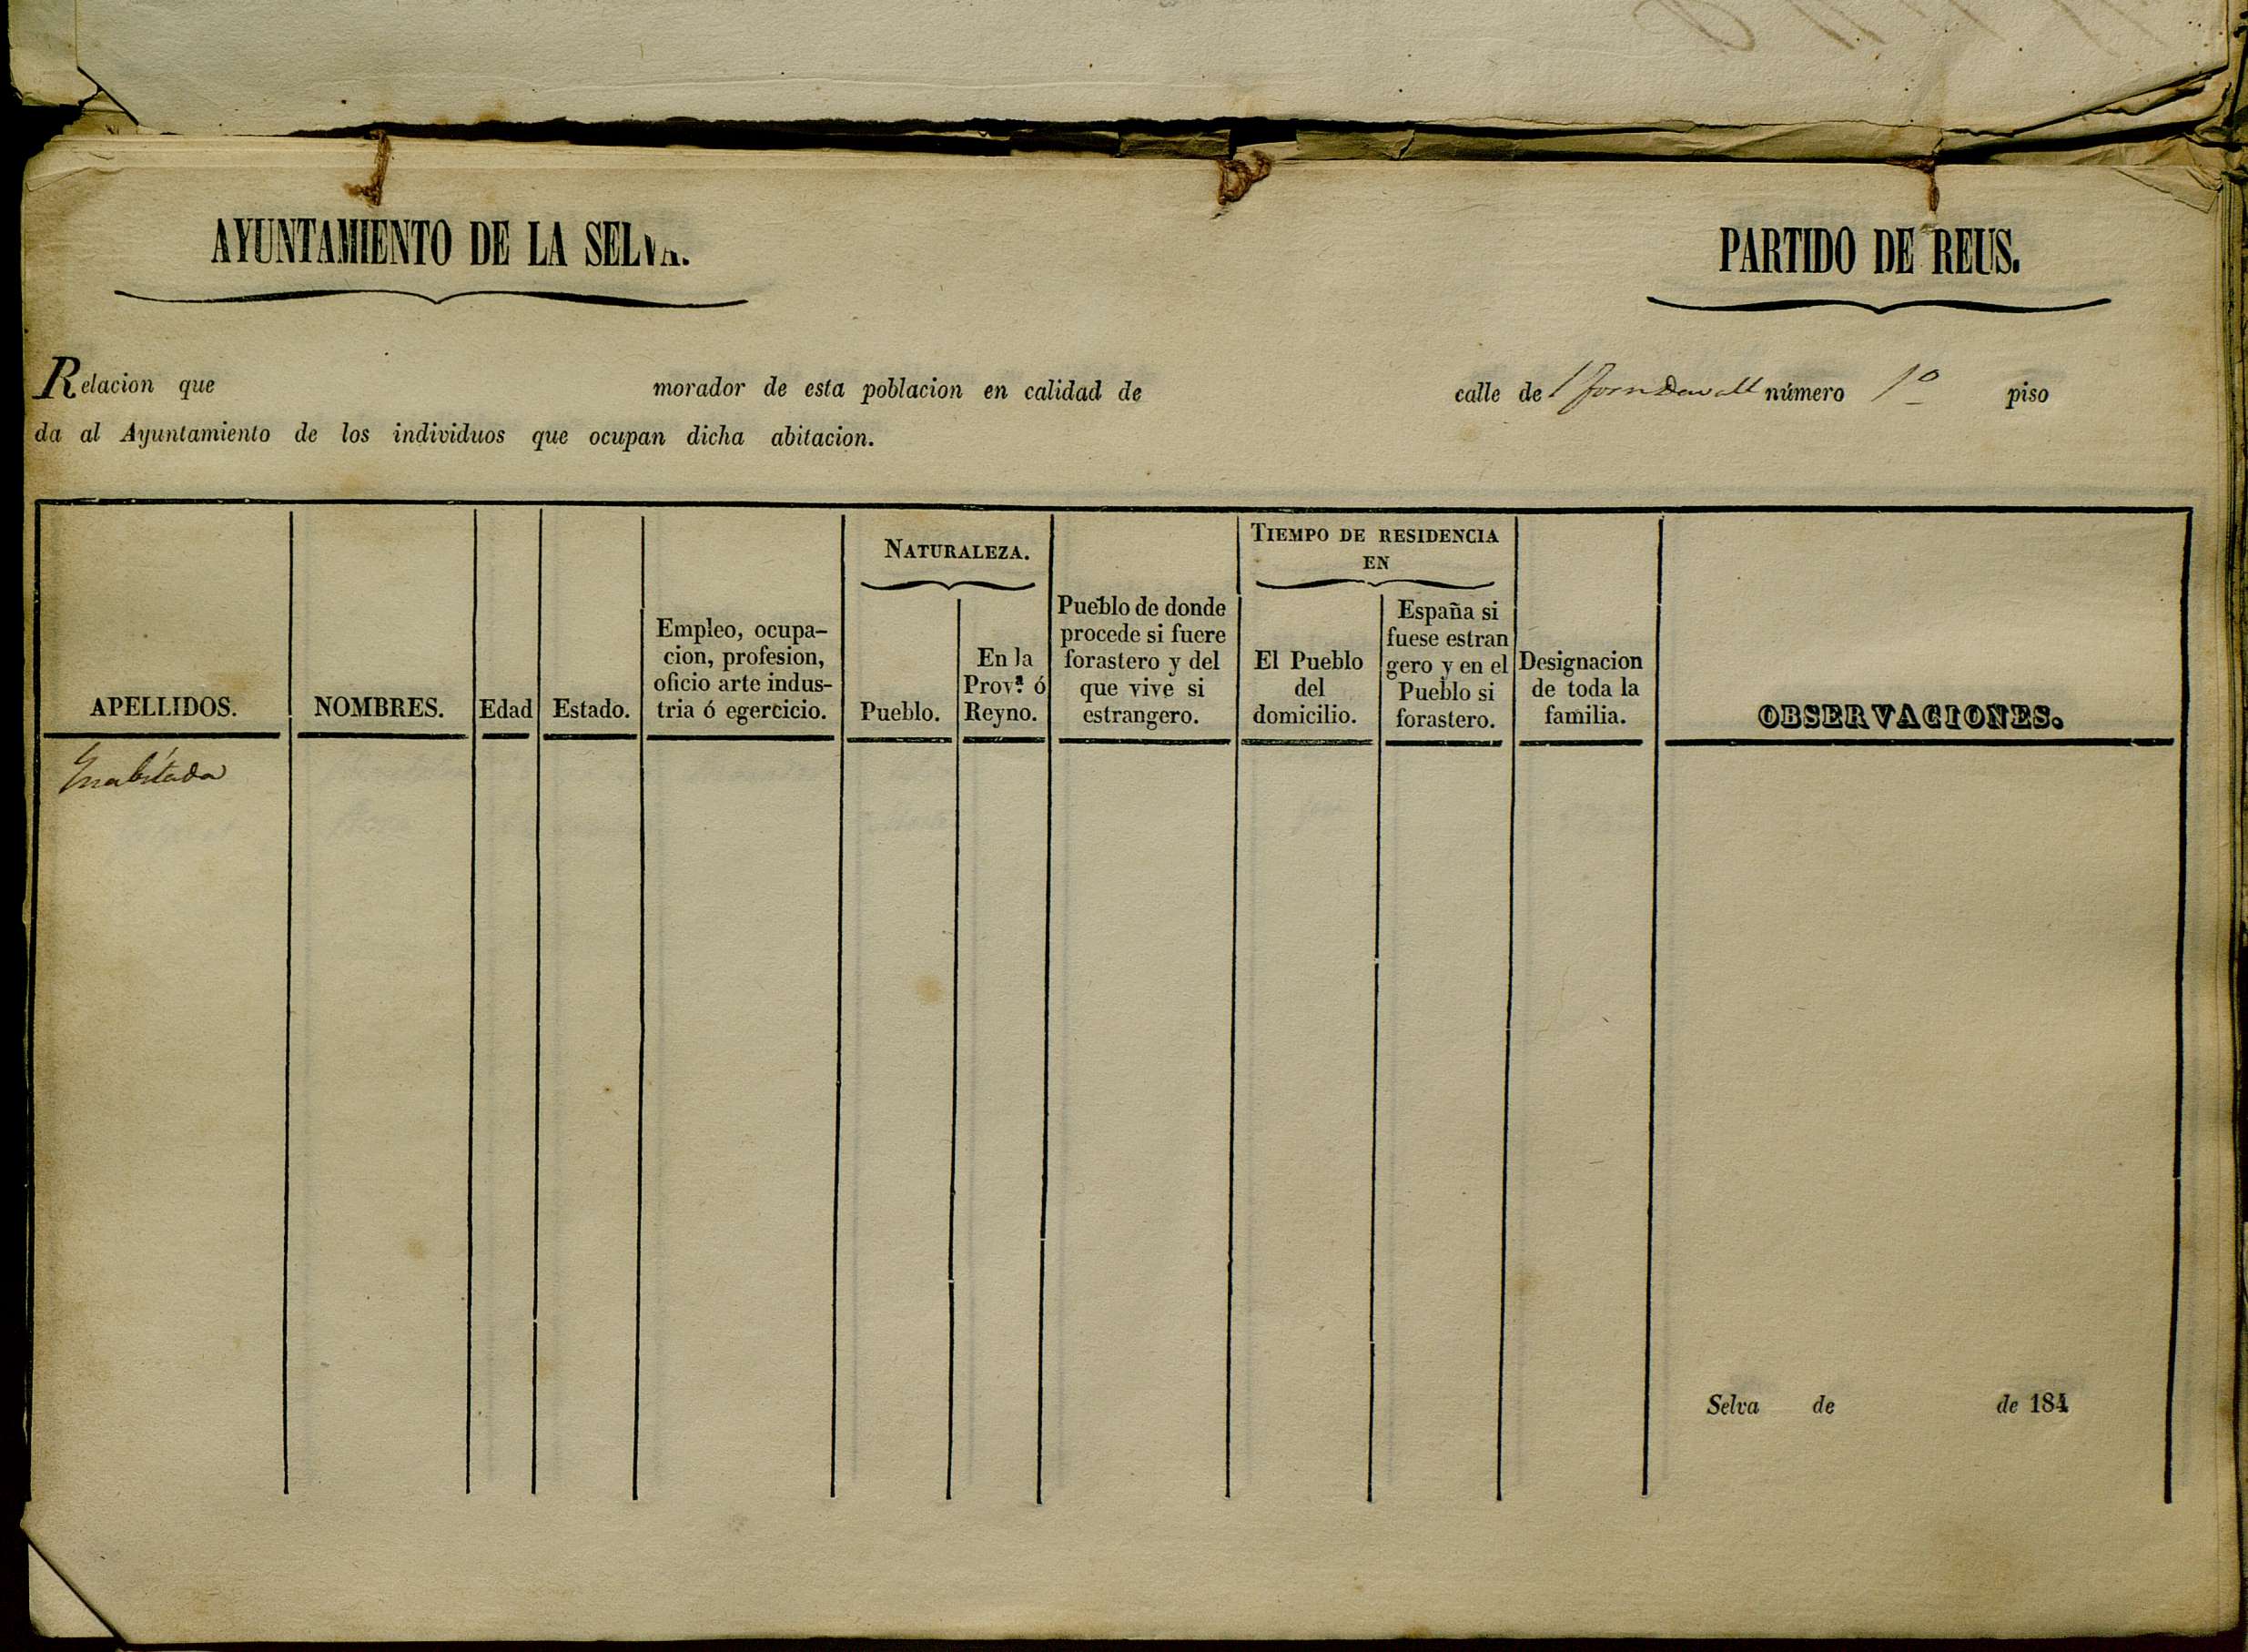 AYUNTAMIENTO DE LA SELVA.
PARTIDO DE REUS.
Relacion que morador de esta poblacion en calidad de calle de Forn Devall número 1º piso
da al Ayuntamiento de los individuos que ocupan dicha abitacion.
APELLIDOS.
NOMBRES.
Edad
Estado.
Empleo, ocupa-
cion, profesion,
oficio arte indus-
tria ó egercicio.
NATURALEZA.
Pueblo.
En la
Prov.ª ó
Reyno.
Pueblo de donde
procede si fuere
forastero y del
que vive si
estrangero.
TIEMPO DE RESIDENCIA
EN
El Pueblo
del
domicilio.
España si
fuese estran
gero y en el
Pueblo si
forastero.
Designacion
de toda la
familia.
OBSERVACIONES.
Inabitada
Selva de de 184